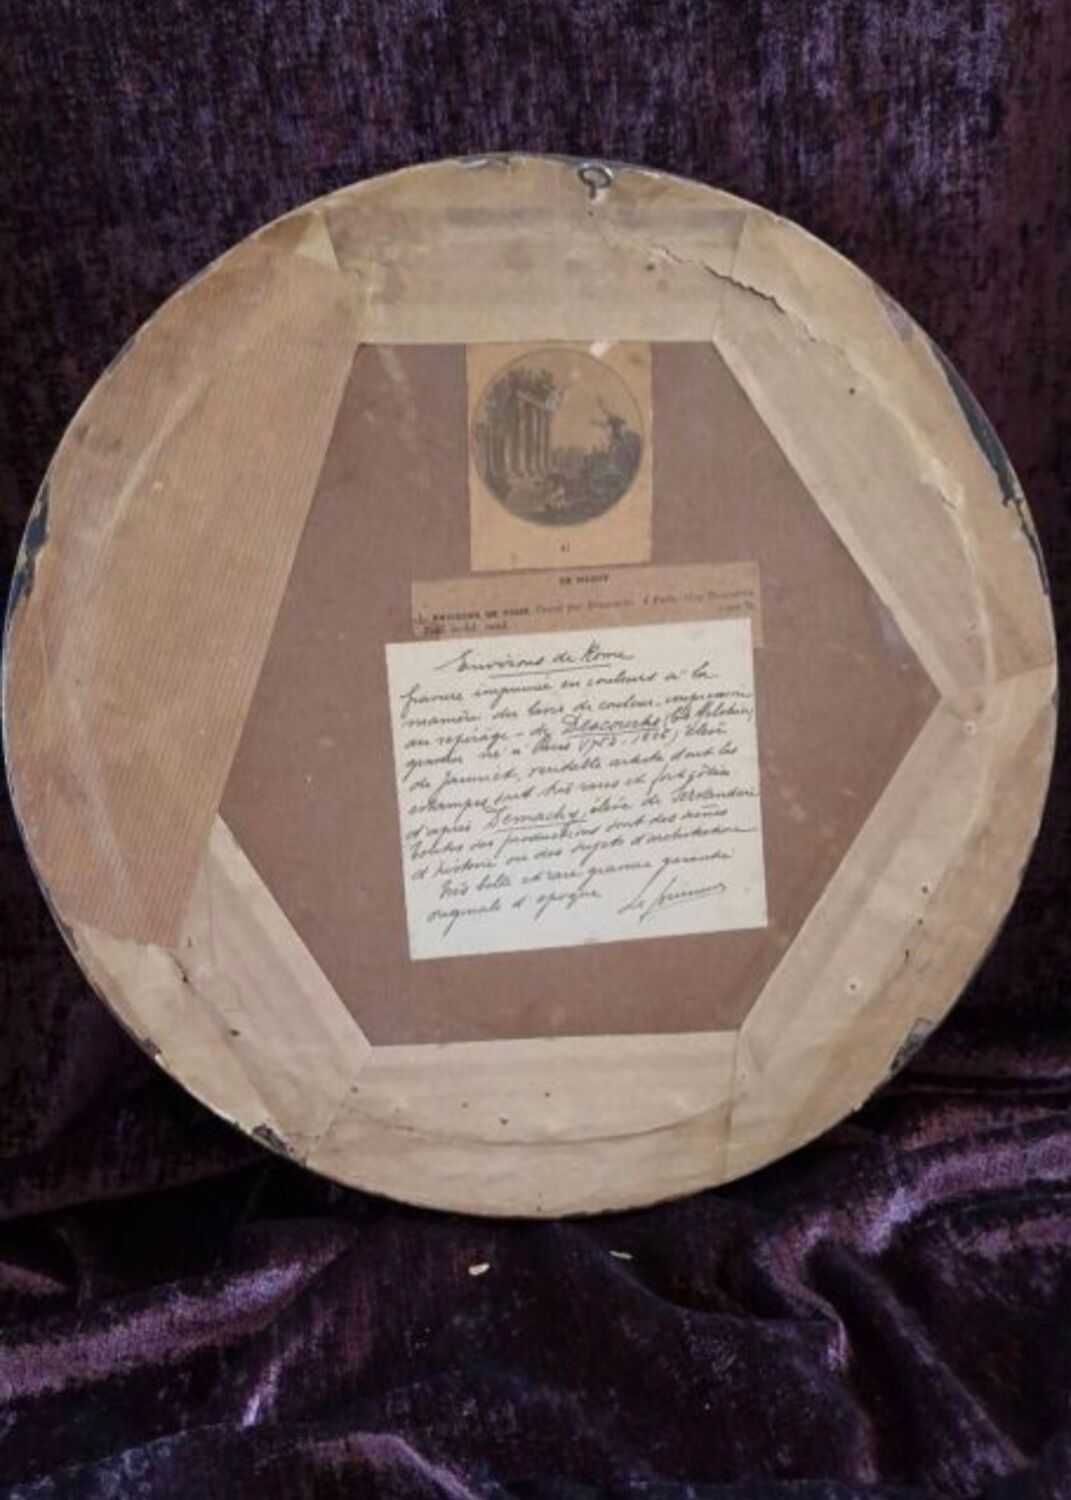 41
DE MACHY
ENVIRONS DE ROME. Gravé par Descourtis. A Paris, chez
Environs de Rome
Gravure imprimée en couleurs à la
manière du lavis de couleur, impression
au repérage - de Descourtis (Ch Melchior)
graveur né à Paris 1753 - 1826, élève
de Janinet, véritable artiste dont les
estampes sont très rares et fort goûtées
d'après Demachy, élève de Servandoni
toutes ses productions sont des ruines
d'histoire ou des sujets d'architecture
très belle et rare gravure garantie
originale d'époque